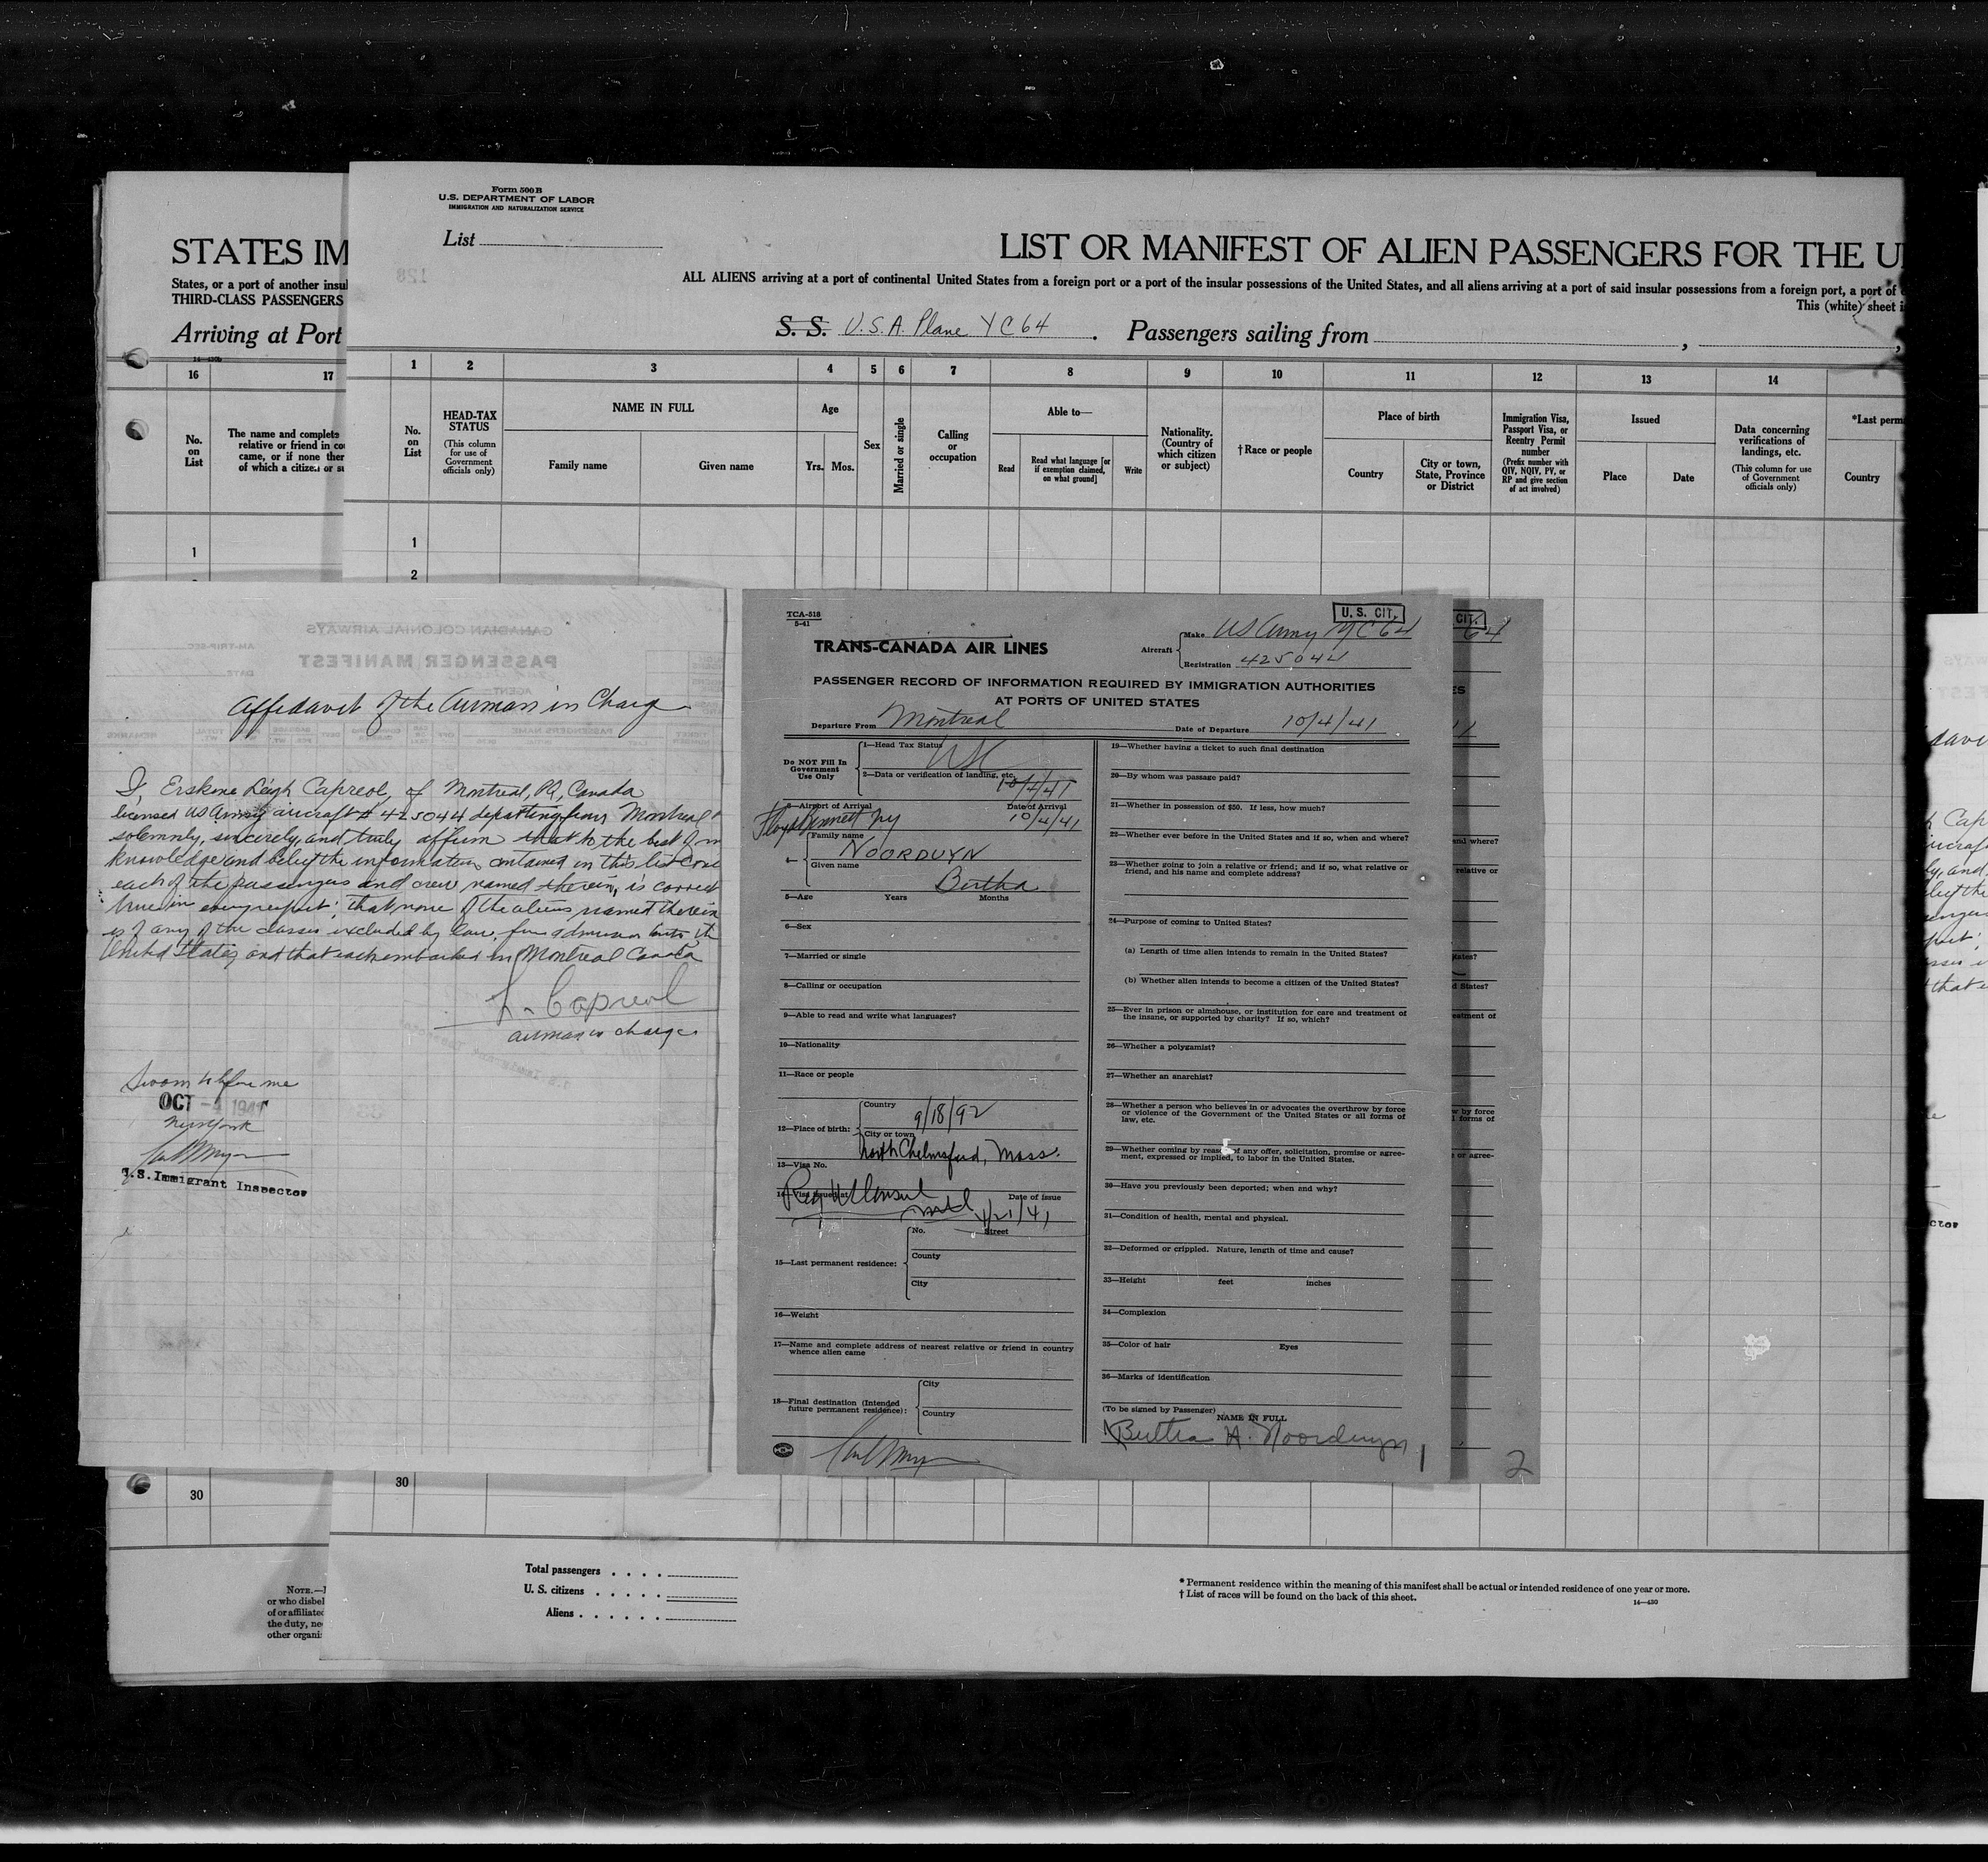 STATES IM
States, or a port of another insul
THIRD-CLASS PASSENGERS
Arriving at Port
16 17
No. on List
The name and complete
relative or friend in cou
came, or if none ther
of which a citizen or su
1
30
NOTE.—I
or who disbel
of or affiliated
the duty, ne
other organi
Form 500 B
U.S. DEPARTMENT OF LABOR
IMMIGRATION AND NATURALIZATION SERVICE
List
LIST OR MANIFEST OF ALIEN PASSENGERS FOR THE U
ALL ALIENS arriving at a port of continental United States from a foreign port or a port of the insular possessions of the United States, and all aliens arriving at a port of said insular possessions from a foreign port, a port of
This (white) sheet i
S. S. U.S.A. Plane YC64. Passengers sailing from , ,
1 2 3 4 5 6 7 8 9 10 11 12 13 14
No. on List
HEAD-TAX STATUS
(This column for use of Government officials only)
NAME IN FULL
Family name Given name
Age
Yrs. Mos.
Sex
Married or single
Calling or occupation
Able to—
Read
Read what language [or if exemption claimed, on what ground]
Write
Nationality. (Country of which citizen or subject)
†Race or people
Place of birth
Country
City or town, State, Province or District
Immigration Visa, Passport Visa, or Reentry Permit number
(Prefix number with QIV, NQIV, PV, or RP and give section of act involved)
Issued
Place Date
Data concerning verifications of landings, etc.
(This column for use of Government officials only)
*Last perm
Country
1
2
30
Total passengers . . . .
U. S. citizens . . . . .
Aliens . . . . . .
* Permanent residence within the meaning of this manifest shall be actual or intended residence of one year or more.
† List of races will be found on the back of this sheet.
14—430
CANADIAN COLONIAL AIRWAYS
PASSENGER MANIFEST
Affidavit of the Airman in Charge
I, Erskine Leigh Capreol, of Montreal, PQ, Canada
licensed US Army aircraft # 425044 departing from Montreal
solemnly, sincerely, and truly affirm that to the best of m
knowledge and belief the information contained in this list conc
each of the passengers and crew named therein, is correct
true in every respect; that none of the aliens named therein
is of any of the classes excluded by law, from admission into the
United States and that each embarked in Montreal Canada
L. Capreol
airman in charge
Sworn to before me
OCT - 4 1941
New York
U.S. Immigrant Inspector
TCA-518
5-41
TRANS-CANADA AIR LINES
U. S. CIT.
Aircraft
Make US Army YC64
Registration 425044
PASSENGER RECORD OF INFORMATION REQUIRED BY IMMIGRATION AUTHORITIES
AT PORTS OF UNITED STATES
Departure From Montreal Date of Departure 10/4/41
Do NOT Fill In Government Use Only
1—Head Tax Status USC
2—Data or verification of landing, etc. 10/4/41
3—Airport of Arrival Date of Arrival
Floyd Bennett NY 10/4/41
4—
Family name
NOORDUYN
Given name
Bertha
5—Age Years Months
6—Sex
7—Married or single
8—Calling or occupation
9—Able to read and write what languages?
10—Nationality
11—Race or people
12—Place of birth:
Country 9/18/92
City or town
North Chelmsford, Mass.
13—Visa No.
14—Visa issued at Date of issue
Reg US Consul Mtl 4/21/41
15—Last permanent residence:
No. Street
County
City
16—Weight
17—Name and complete address of nearest relative or friend in country
whence alien came
18—Final destination (Intended
future permanent residence):
City
Country
19—Whether having a ticket to such final destination
20—By whom was passage paid?
21—Whether in possession of $50. If less, how much?
22—Whether ever before in the United States and if so, when and where?
23—Whether going to join a relative or friend; and if so, what relative or
friend, and his name and complete address?
24—Purpose of coming to United States?
(a) Length of time alien intends to remain in the United States?
(b) Whether alien intends to become a citizen of the United States?
25—Ever in prison or almshouse, or institution for care and treatment of
the insane, or supported by charity? If so, which?
26—Whether a polygamist?
27—Whether an anarchist?
28—Whether a person who believes in or advocates the overthrow by force
or violence of the Government of the United States or all forms of
law, etc.
29—Whether coming by reason of any offer, solicitation, promise or agree-
ment, expressed or implied, to labor in the United States.
30—Have you previously been deported; when and why?
31—Condition of health, mental and physical.
32—Deformed or crippled. Nature, length of time and cause?
33—Height feet inches
34—Complexion
35—Color of hair Eyes
36—Marks of identification
(To be signed by Passenger)
NAME IN FULL
Bertha H. Noorduyn
1
CIT.
64
ES
and where?
relative or
States?
d States?
eatment of
w by force
l forms of
e or agree-
2